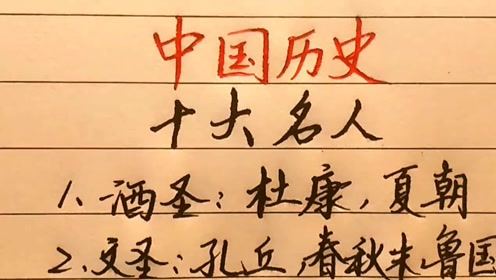 中国历史
十大名人
1、酒圣：杜康，夏朝
2、文圣：孔丘，春秋末鲁国